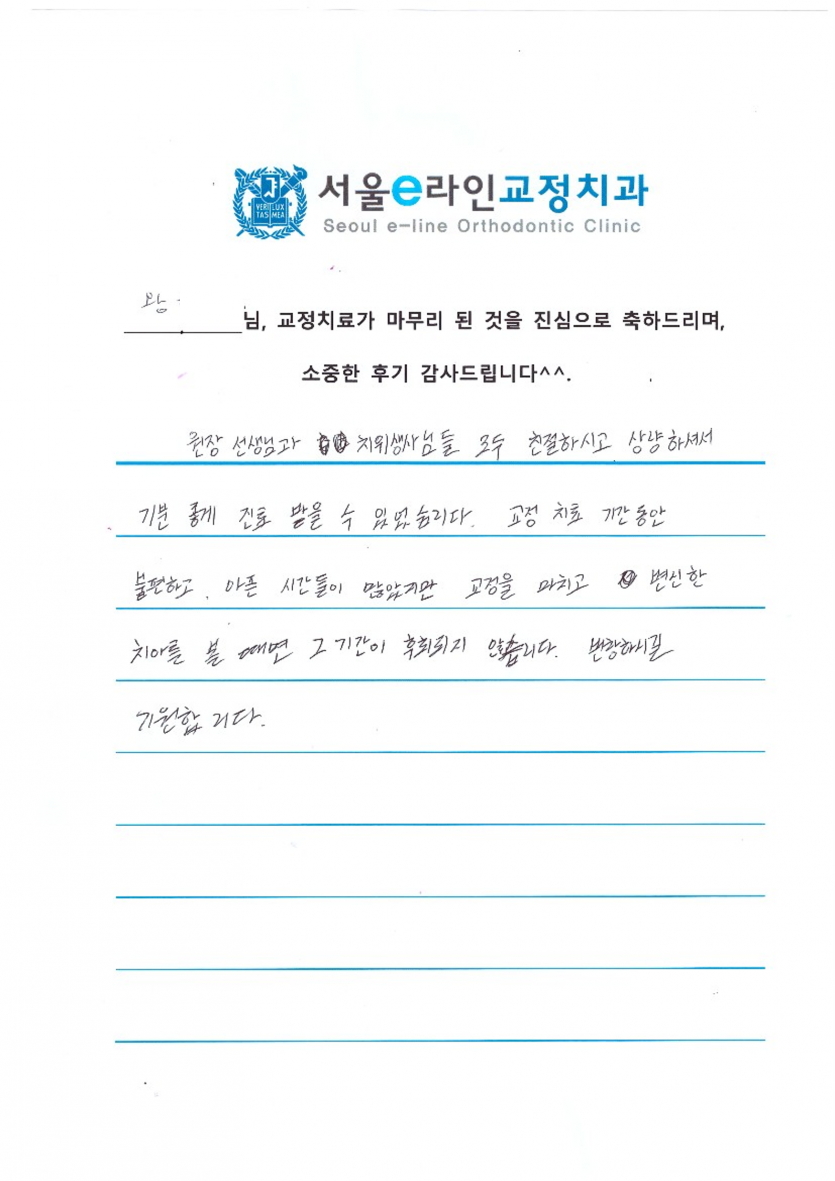 VERI LUX TAS MEA
서울e라인교정치과
Seoul e-line Orthodontic Clinic
왕
님, 교정치료가 마무리 된 것을 진심으로 축하드리며,
소중한 후기 감사드립니다^^.
원장 선생님과 치위생사님들 모두 친절하시고 상냥하셔서
기분 좋게 진료 받을 수 있었습니다. 교정 치료 기간동안
불편하고, 아픈 시간들이 많았지만 교정을 마치고 변신한
치아를 볼 때면 그 기간이 후회되지 않습니다. 번창하시길
기원합니다.